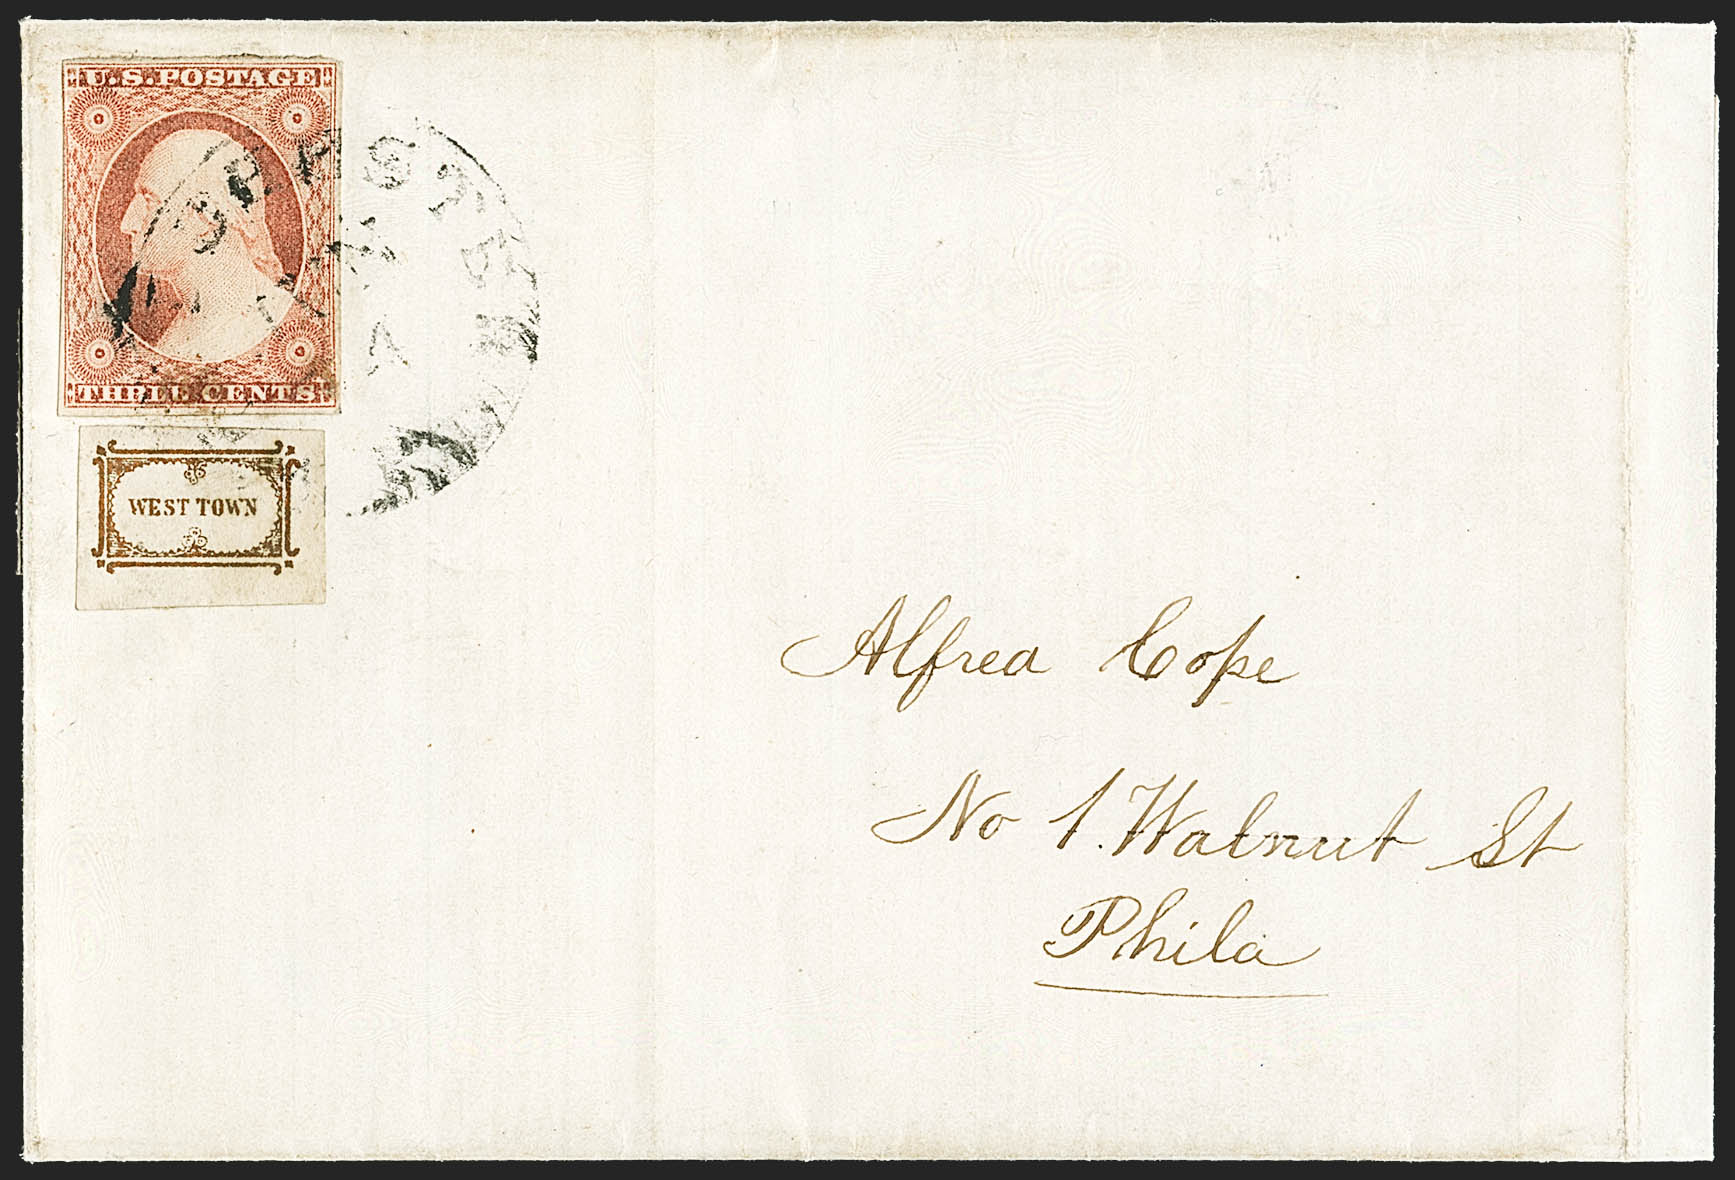 U.S. POSTAGE
THREE CENTS
WEST TOWN
Alfred Cope
No 1. Walnut St
Phila